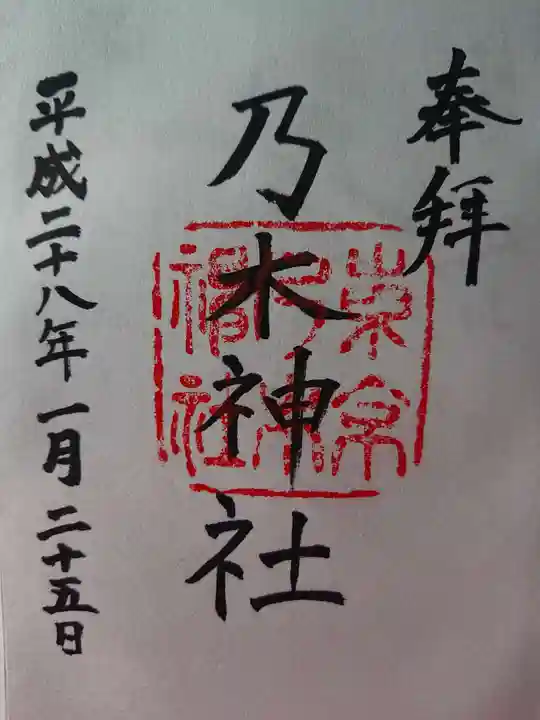 奉拝
乃木神社
平成二十八年一月二十五日